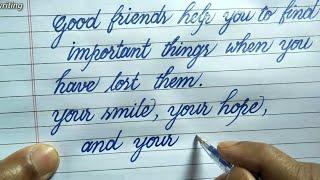 writing
Good friends help you to find
important things when you
have lost them.
your smile, your hope,
and your